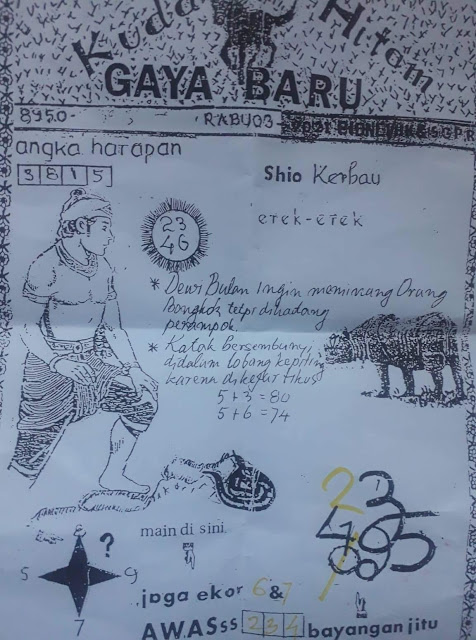 Kuda Hitam
GAYA BARU
8950-
RABU03-
angka harapan
3815
Shio Kerbau
eTek-eTek
23
46
* Dewi Bulan Ingin meminang Orang
Bongkok tetpi dihadang
perampok.
* Katak Bersembunyi
didalam Lobang kepiting
karena dikejar tikus
5+3=80
5+6=74
main di sini
?
S
9
7
jaga ekor 6&7
AWASss 234 bayangan jitu